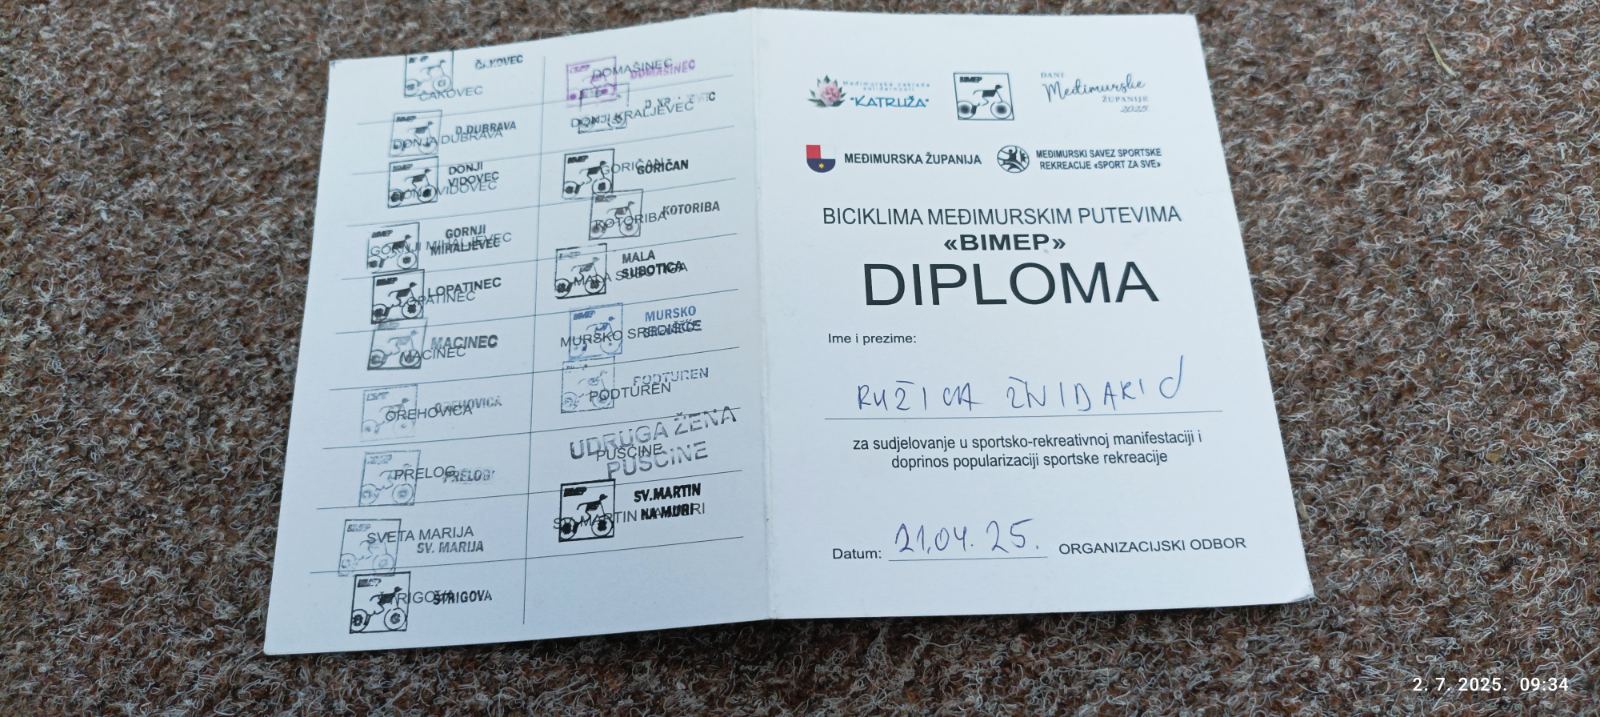 BIMEP
ČAKOVEC
ČAKOVEC
D.DUBRAVA
DONJA DUBRAVA
DONJI
VIDOVEC
DONJI VIDOVEC
GORNJI
MIHALJEVEC
GORNJI MIHALJEVEC
LOPATINEC
LOPATINEC
MACINEC
MACINEC
OREHOVICA
OREHOVICA
PRELOG
PRELOG
BIMEP
SVETA MARIJA
SV. MARIJA
ŠTRIGOVA
ŠTRIGOVA
DOMAŠINEC
DOMAŠINEC
DONJI KRALJEVEC
GORIČAN
GORIČAN
KOTORIBA
KOTORIBA
MALA
SUBOTICA
MALA SUBOTICA
MURSKO
SREDIŠĆE
MURSKO SREDIŠĆE
PODTUREN
PODTUREN
UDRUGA ŽENA
PUŠĆINE
PUŠĆINE
BIMEP
SV.MARTIN
NA MURI
SV. MARTIN NA MURI
Međimurska zaklada
"KATRUŽA"
BIMEP
DANI
Međimurske
ŽUPANIJE
2025
MEĐIMURSKA ŽUPANIJA
MEĐIMURSKI SAVEZ SPORTSKE
REKREACIJE «SPORT ZA SVE»
BICIKLIMA MEĐIMURSKIM PUTEVIMA
«BIMEP»
DIPLOMA
Ime i prezime:
RUŽICA ŽNIDARIĆ
za sudjelovanje u sportsko-rekreativnoj manifestaciji i
doprinos popularizaciji sportske rekreacije
Datum: 21.04.25. ORGANIZACIJSKI ODBOR
2. 7. 2025. 09:34